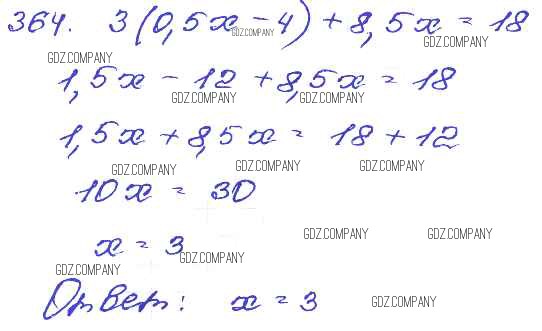 364. 3(0,5x - 4) + 8,5x = 18
GDZ.COMPANY
GDZ.COMPANY
GDZ.COMPANY
1,5x - 12 + 8,5x = 18
GDZ.COMPANY
GDZ.COMPANY
1,5x + 8,5x = 18 + 12
GDZ.COMPANY
GDZ.COMPANY
GDZ.COMPANY
10x = 30
GDZ.COMPANY
GDZ.COMPANY
x = 3
GDZ.COMPANY
GDZ.COMPANY
Ответ: x = 3
GDZ.COMPANY